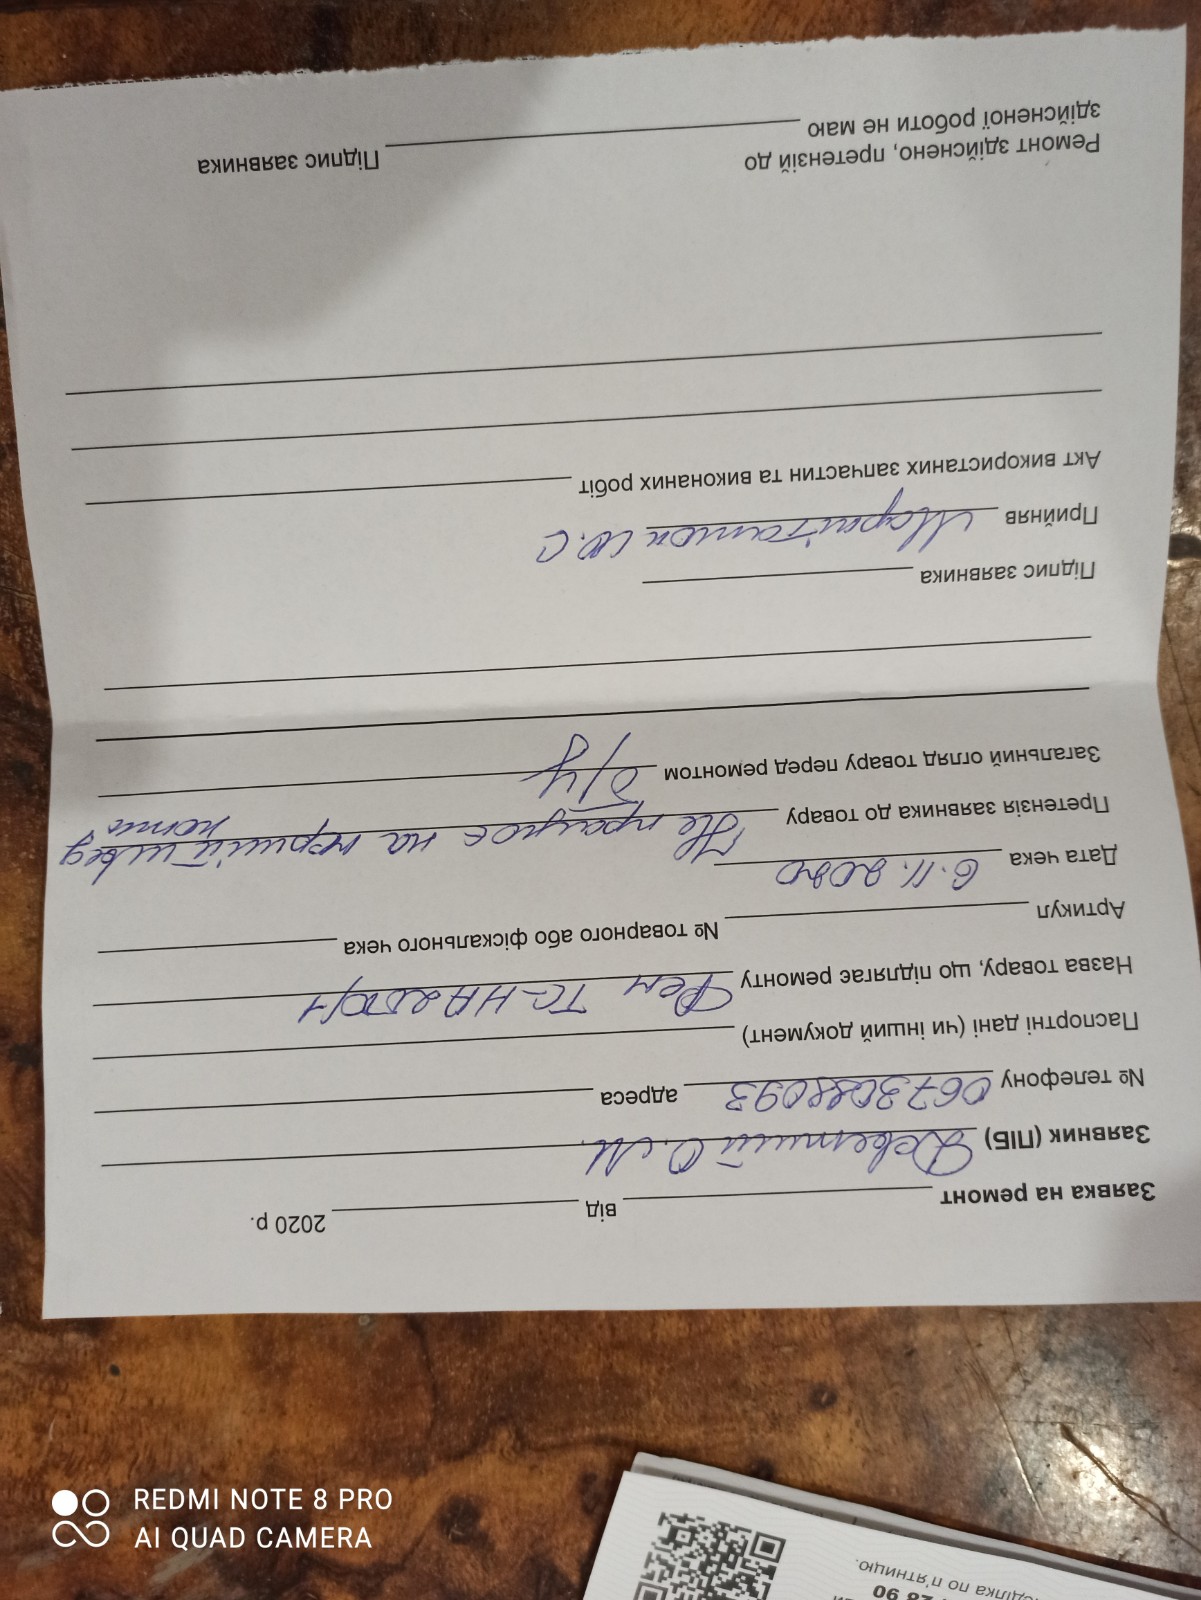 Заявка на ремонт ____ від ____ 2020 р.
Заявник (ПІБ) О.М.
№ телефону 0673088093 адреса
Паспортні дані (чи інший документ)
Назва товару, що підлягає ремонту Фен TC-HA2070/1
Артикул ____ № товарного або фіскального чека
Дата чека 6.11.2020
Претензія заявника до товару Не працює на першій швид
кості
Загальний огляд товару перед ремонтом б/у
Підпис заявника
Прийняв Ю.С
Акт використаних запчастин та виконаних робіт
Ремонт здійснено, претензій до
здійсненої роботи не маю ____ Підпис заявника
28 90
еділка по п'ятницю.
REDMI NOTE 8 PRO
AI QUAD CAMERA